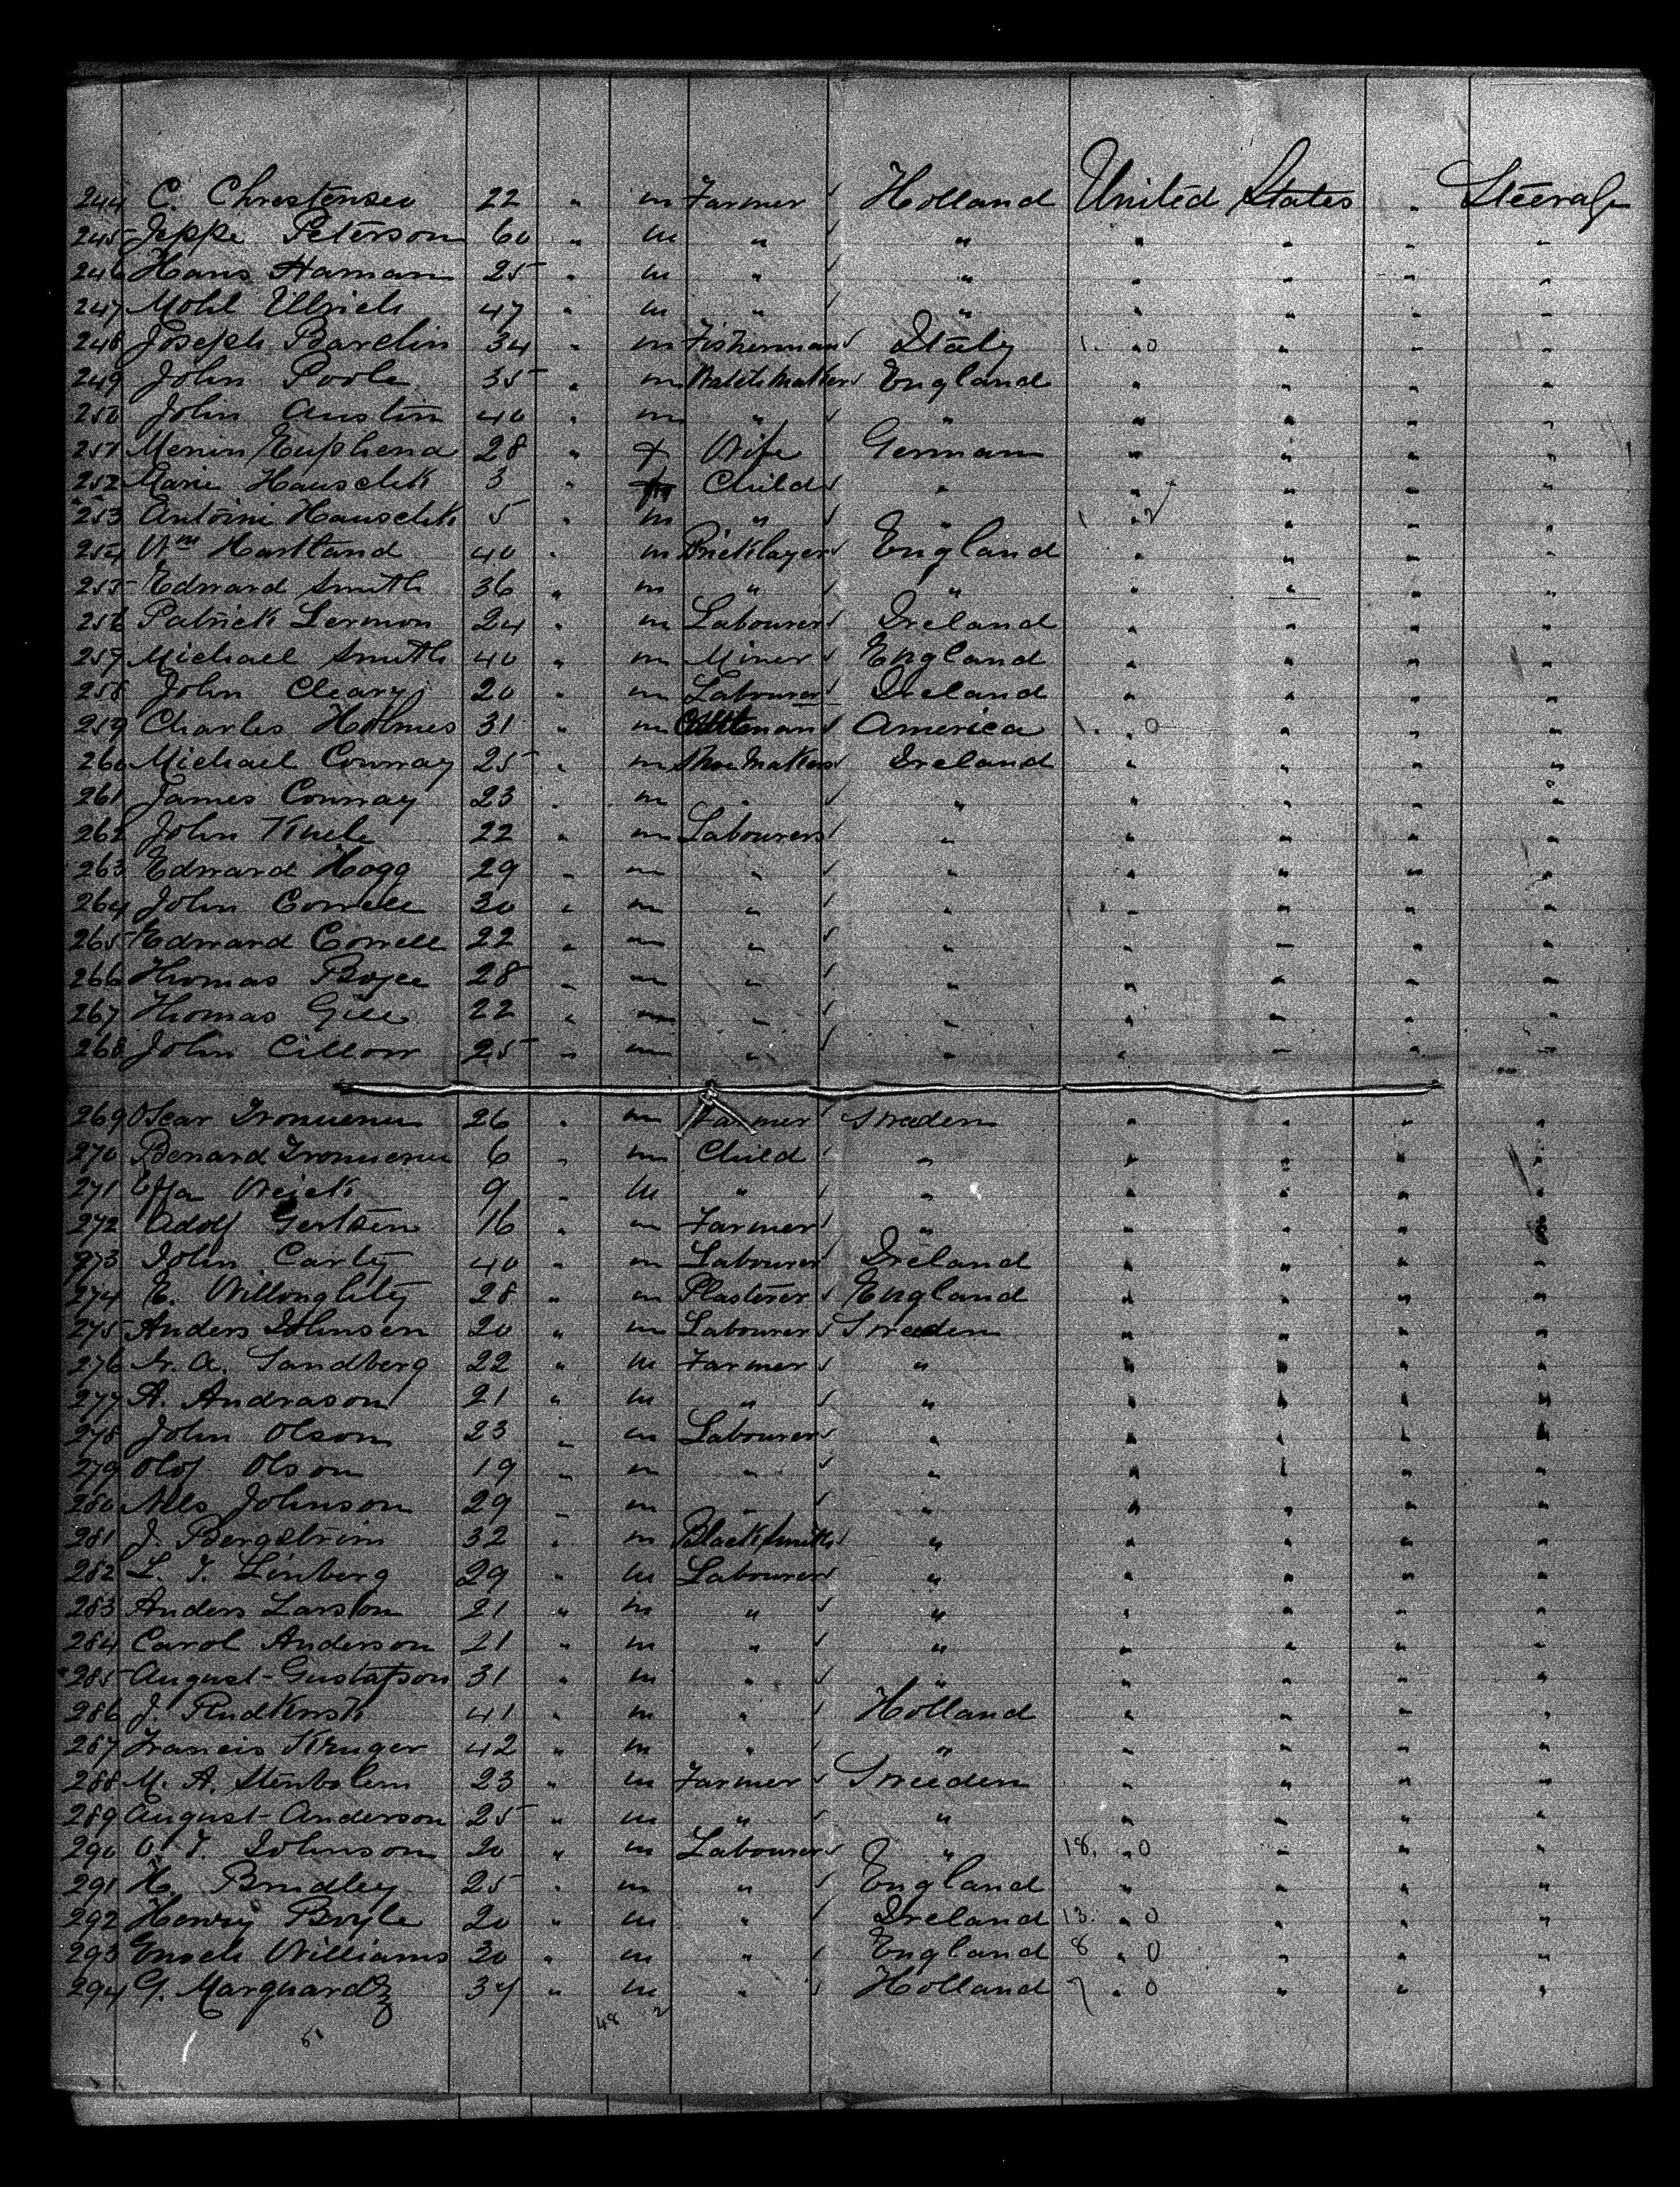 244 C. Christensen 22 " m Farmer Holland United States " Steerage
245 Jeppe Peterson 60 " m " " " " " "
246 Hans Haman 25 " m " " " " " "
247 Mohl Ullrich 47 " m " " " " " "
248 Joseph Barclin 34 " m Fisherman Italy 1. " 0 " " "
249 John Poole 35 " m England " " " "
250 John Austin 40 " m " " " " " "
251 Menin Euphena 28 " f Wife German " " " "
252 Marie Hauschk 3 " f Child " " " " "
253 Antoine Hauschk 5 " m " " 1 " 2 " " "
254 Wm Hartland 40 " m Bricklayer England " " " "
255 Edward Smith 36 " m " " " " " "
256 Patrick Lermon 24 " m Labourer Ireland " " " "
257 Michael Smith 40 " m Miner England " " " "
258 John Cleary 20 " m Labourer Ireland " " " "
259 Charles Holmes 31 " m Cattleman America 1. " 0 " " "
260 Michael Conway 25 " m Shoe Maker Ireland " " " "
261 James Conway 23 " m " " " " " "
262 John 22 " m Labourer " " " " "
263 Edward Hogg 29 " m " " " " " "
264 John Correll 30 " m " " " " " "
265 Edward Correll 22 " m " " " " " "
266 Thomas Boyce 28 " m " " " " " "
267 Thomas Gill 22 " m " " " " " "
268 John Cillow 25 " m " " " " " "
269 Oscar 26 " m Farmer Sweden " " " "
270 Benard 6 " m Child " " " " "
271 9 " m " " " " " "
272 Adolf Gertsen 16 " m Farmer " " " " "
273 John Carty 40 " m Labourer Ireland " " " "
274 E. Willoughby 28 " m Plasterer England " " " "
275 Anders Johnsen 20 " m Labourer Sweden " " " "
276 A. Sandberg 22 " m Farmer " " " " "
277 A. Andrason 21 " m " " " " " "
278 John Olson 23 " m Labourer " " " " "
279 Olof Olson 19 " m " " " " " "
280 Nels Johnson 29 " m " " " " " "
281 J. Bergstrim 32 " m Blacksmith " " " " "
282 L. J. Linberg 29 " m Labourer " " " " "
283 Anders Larson 21 " m " " " " " "
284 Carol Anderson 21 " m " " " " " "
285 August Gustafson 31 " m " " " " " "
286 J. 41 " m " Holland " " " "
287 Francis Kruger 42 " m " " " " " "
288 M. A. Stenbolem 23 " m Farmer Sweeden " " " "
289 August Anderson 25 " m " " " " " "
290 O. J. Johnson 20 " m Labourer " 18. " 0 " " "
291 H. Brudley 25 " m " England " " " "
292 Henry Boyle 20 " m " Ireland 13. " 0 " " "
293 Enoch Williams 30 " m " England 8 " 0 " " "
294 G. Marquardz 34 " m " Holland 7 " 0 " " "
48 2